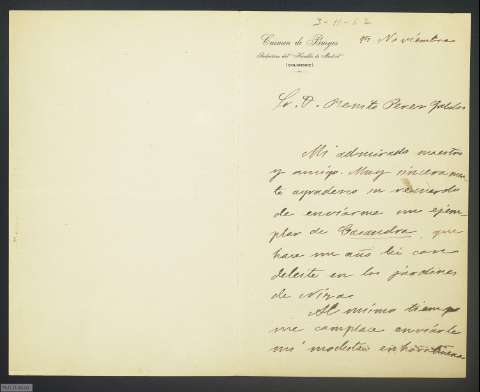 3-11-62
Carmen de Burgos
Redactora del "Heraldo de Madrid"
(COLOMBINE)
Noviembre
Sr. D. Benito Perez Galdos
Mi admirado maestro
y amigo. Muy sinceramen
te agradezco su recuerdo
de enviarme un ejem-
plar de Casandra, que
hace un año leí con
deleite en los jardines
de Niza
Al mismo tiempo
me complace enviarle
mi modesta enhorabuena